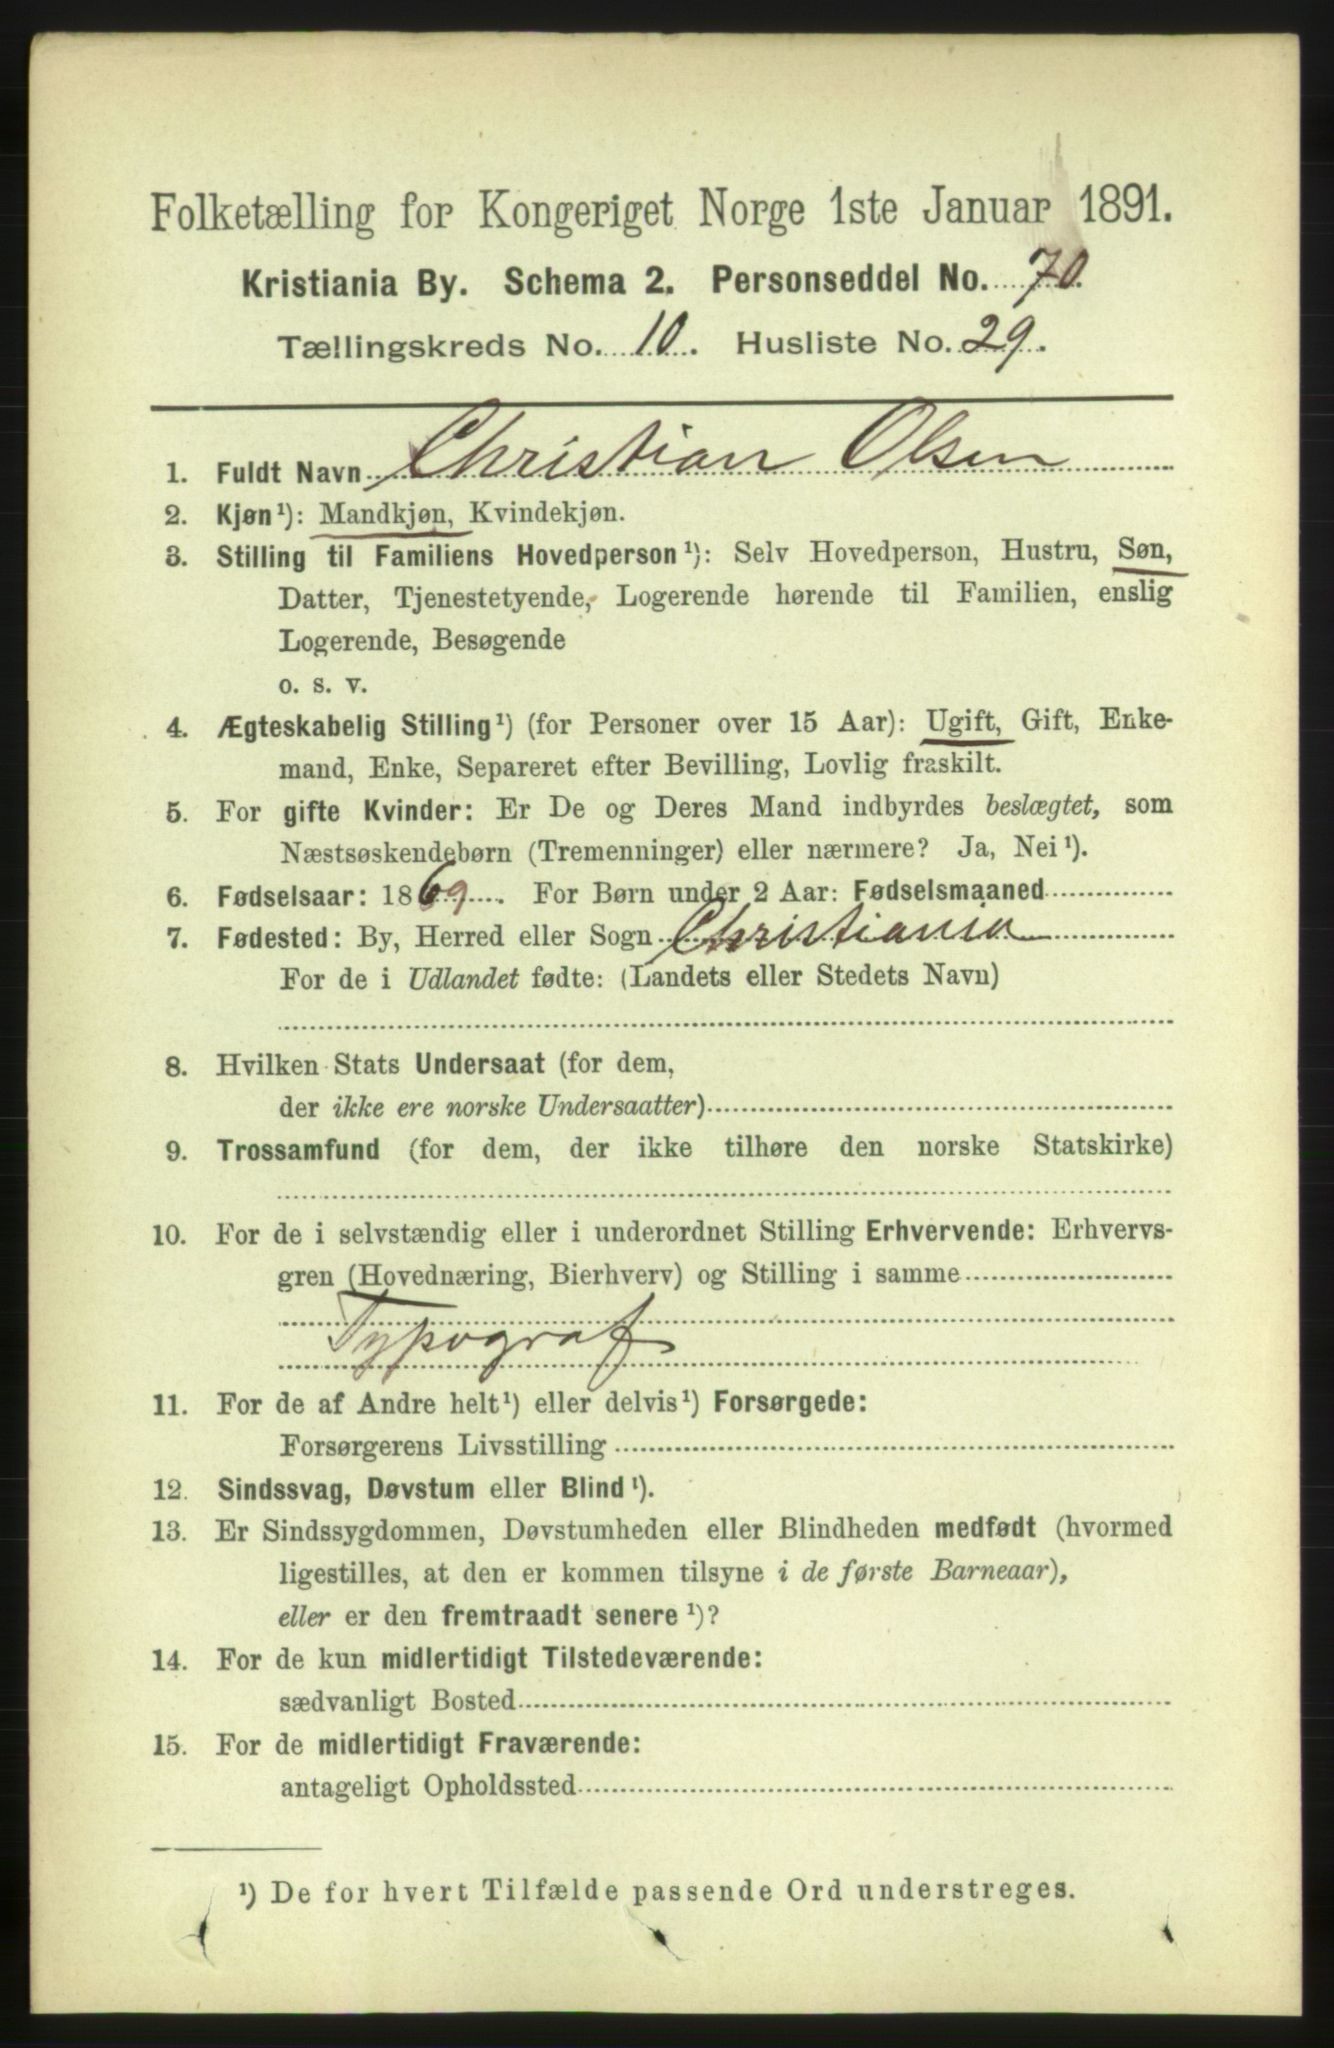 Folketælling for Kongeriget Norge 1ste Januar 1891.
Kristiania By. Schema 2. Personseddel No. 70.
Tællingskreds No. 10. Husliste No. 29.
1. Fuldt Navn Christian Olsen
2. Kjøn¹): Mandkjøn, Kvindekjøn.
3. Stilling til Familiens Hovedperson¹): Selv Hovedperson, Hustru, Søn,
Datter, Tjenestetyende, Logerende hørende til Familien, enslig
Logerende, Besøgende
o. s. v.
4. Ægteskabelig Stilling¹) (for Personer over 15 Aar): Ugift, Gift, Enke-
mand, Enke, Separeret efter Bevilling, Lovlig fraskilt.
5. For gifte Kvinder: Er De og Deres Mand indbyrdes beslægtet, som
Næstsøskendebørn (Tremenninger) eller nærmere? Ja, Nei¹).
6. Fødselsaar: 1869. For Børn under 2 Aar: Fødselsmaaned
7. Fødested: By, Herred eller Sogn Christiania
For de i Udlandet fødte: (Landets eller Stedets Navn)
8. Hvilken Stats Undersaat (for dem,
der ikke ere norske Undersaatter)
9. Trossamfund (for dem, der ikke tilhøre den norske Statskirke)
10. For de i selvstændig eller i underordnet Stilling Erhvervende: Erhvervs-
gren (Hovednæring, Bierhverv) og Stilling i samme
Typograf
11. For de af Andre helt¹) eller delvis¹) Forsørgede:
Forsørgerens Livsstilling
12. Sindssvag, Døvstum eller Blind¹).
13. Er Sindssygdommen, Døvstumheden eller Blindheden medfødt (hvormed
ligestilles, at den er kommen tilsyne i de første Barneaar),
eller er den fremtraadt senere¹)?
14. For de kun midlertidigt Tilstedeværende:
sædvanligt Bosted
15. For de midlertidigt Fraværende:
antageligt Opholdssted
¹) De for hvert Tilfælde passende Ord understreges.